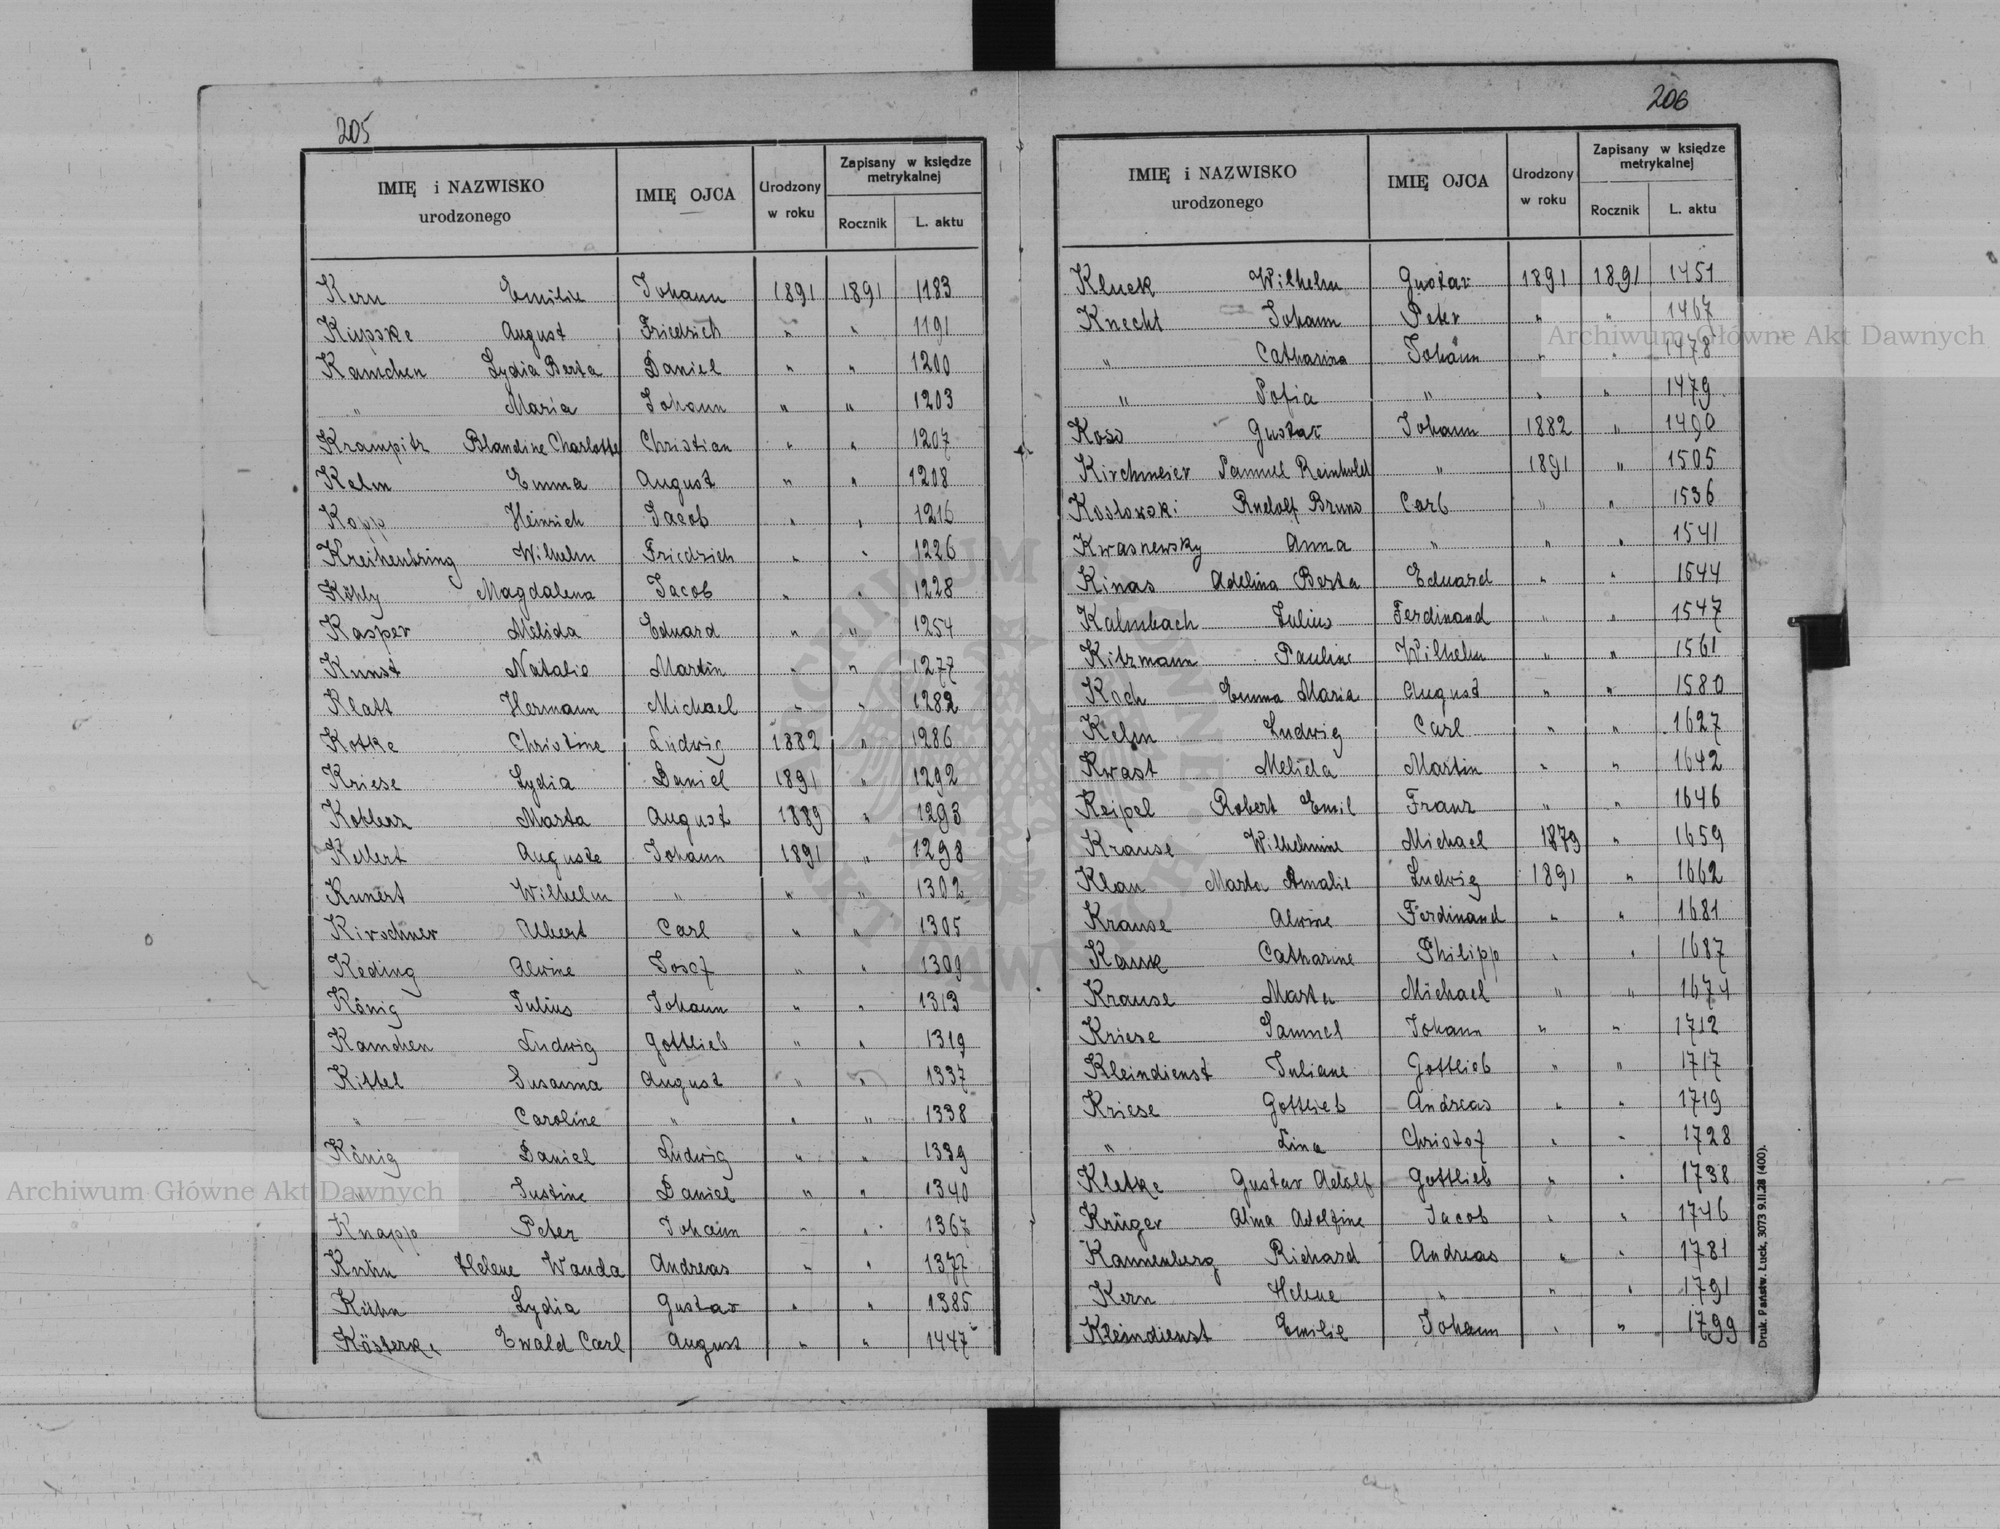 205
IMIĘ i NAZWISKO urodzonego IMIĘ OJCA Urodzony w roku Zapisany w księdze metrykalnej Rocznik L. aktu
Kern Emilie Johann 1891 1891 1183
Kupske August Friedrich " " 1191
Kamchen Lydia Berta Daniel " " 1200
" Maria Johann " " 1203
Krampitz Blandine Charlotte Christian " " 1207
Kelm Emma August " " 1208
Kopp Heinrich Jacob " " 1216
Wilhelm Friedrich " " 1226
Köhly Magdalena Jacob " " 1228
Kasper Melida Eduard " " 1254
Kunst Natalie Martin " " 1277
Klatt Hermann Michael " " 1282
Kotke Christine Ludwig 1882 " 1286
Kriese Lydia Daniel 1891 " 1292
Marta August 1889 " 1293
Kellert Auguste Johann 1891 " 1298
Kunert Wilhelm " " " 1302
Kirschner Albert Carl " " 1305
Keding Alwine Josef " " 1309
König Julius Johann " " 1313
Kamchen Ludwig Gottlieb " " 1319
Kittel Susanna August " " 1337
" Caroline " " " 1338
König Daniel Ludwig " " 1339
" Justine Daniel " " 1340
Knapp Peter Johann " " 1367
Kuhn Helene Wanda Andreas " " 1377
Kühn Lydia Gustav " " 1385
Kösterke Ewald Carl August " " 1447
206
IMIĘ i NAZWISKO urodzonego IMIĘ OJCA Urodzony w roku Zapisany w księdze metrykalnej Rocznik L. aktu
Kluck Wilhelm Gustav 1891 1891 1451
Knecht Johann Peter " " 1467
" Catharina Johann " " 1478
" Sofia " " " 1479
Koss Gustav Johann 1882 " 1490
Kirchmeier Samuel Reinhold " 1891 " 1505
Koslowski Rudolf Bruno Carl " " 1536
Kwasnewsky Anna " " " 1541
Kinas Adelina Berta Eduard " " 1544
Kalmbach Julius Ferdinand " " 1547
Kitzmann Pauline Wilhelm " " 1561
Koch Emma Maria August " " 1580
Kelm Ludwig Carl " " 1627
Kwast Melida Martin " " 1642
Keipel Robert Emil Franz " " 1646
Krause Wilhelmine Michael 1879 " 1659
Klan Marta Amalie Ludwig 1891 " 1662
Krause Alwine Ferdinand " " 1681
Kauk Catharine Philipp " " 1687
Krause Marta Michael " " 1674
Kriese Samuel Johann " " 1712
Kleindienst Juliane Gottlieb " " 1717
Kriese Gottlieb Andreas " " 1719
" Lina Christof " " 1728
Kletke Gustav Adolf Gottlieb " " 1738
Krüger Alma Adolfine Jacob " " 1746
Kannenberg Richard Andreas " " 1781
Kern Helene " " " 1791
Kleindienst Emilie Johann " " 1799
Druk. Państw. Łuck. 3073 9.II.28 (400).
Archiwum Główne Akt Dawnych
Archiwum Główne Akt Dawnych
ARCHIWUM GŁÓWNE AKT DAWNYCH